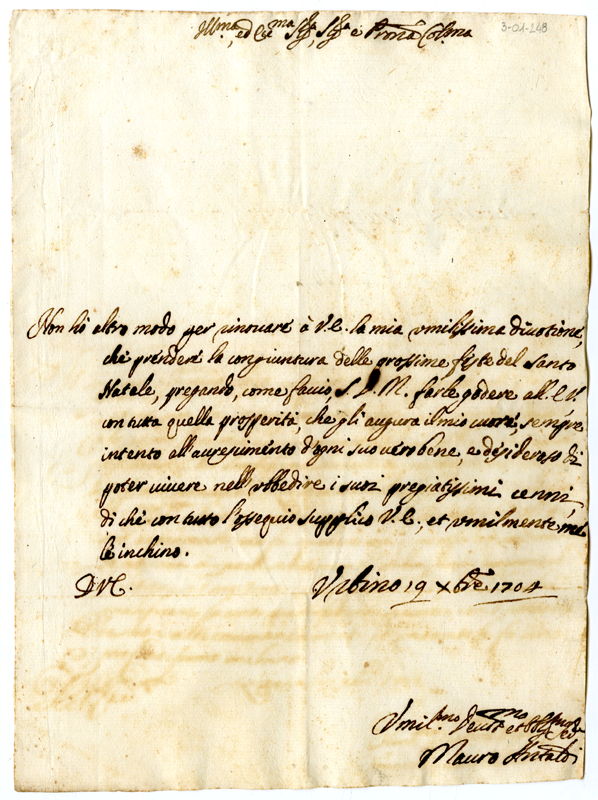 Illma, ed Eccma Sigra, Sigra e Pronā Colma
3-01-248
Non hò altro modo per rinovare à V.E. la mia umilissima divotione,
che prendere la congiuntura delle prossime feste del Santo
Natale, pregando, come faccio, S.D.M. farle godere all'E.V.
con tutta quella prosperità, che gli augura il mio cuore, sempre
intento all'accrescimento d'ogni suo vero bene, e desideroso di
poter vivere nell'ubbedire i suoi pregiatissimi cenni,
di che con tutto l'ossequio supplico V.E., et umilmente me
le inchino.
D.V.E. Urbino 19 Xbre 1704
Umilmo Devmo et
Mauro Antaldi